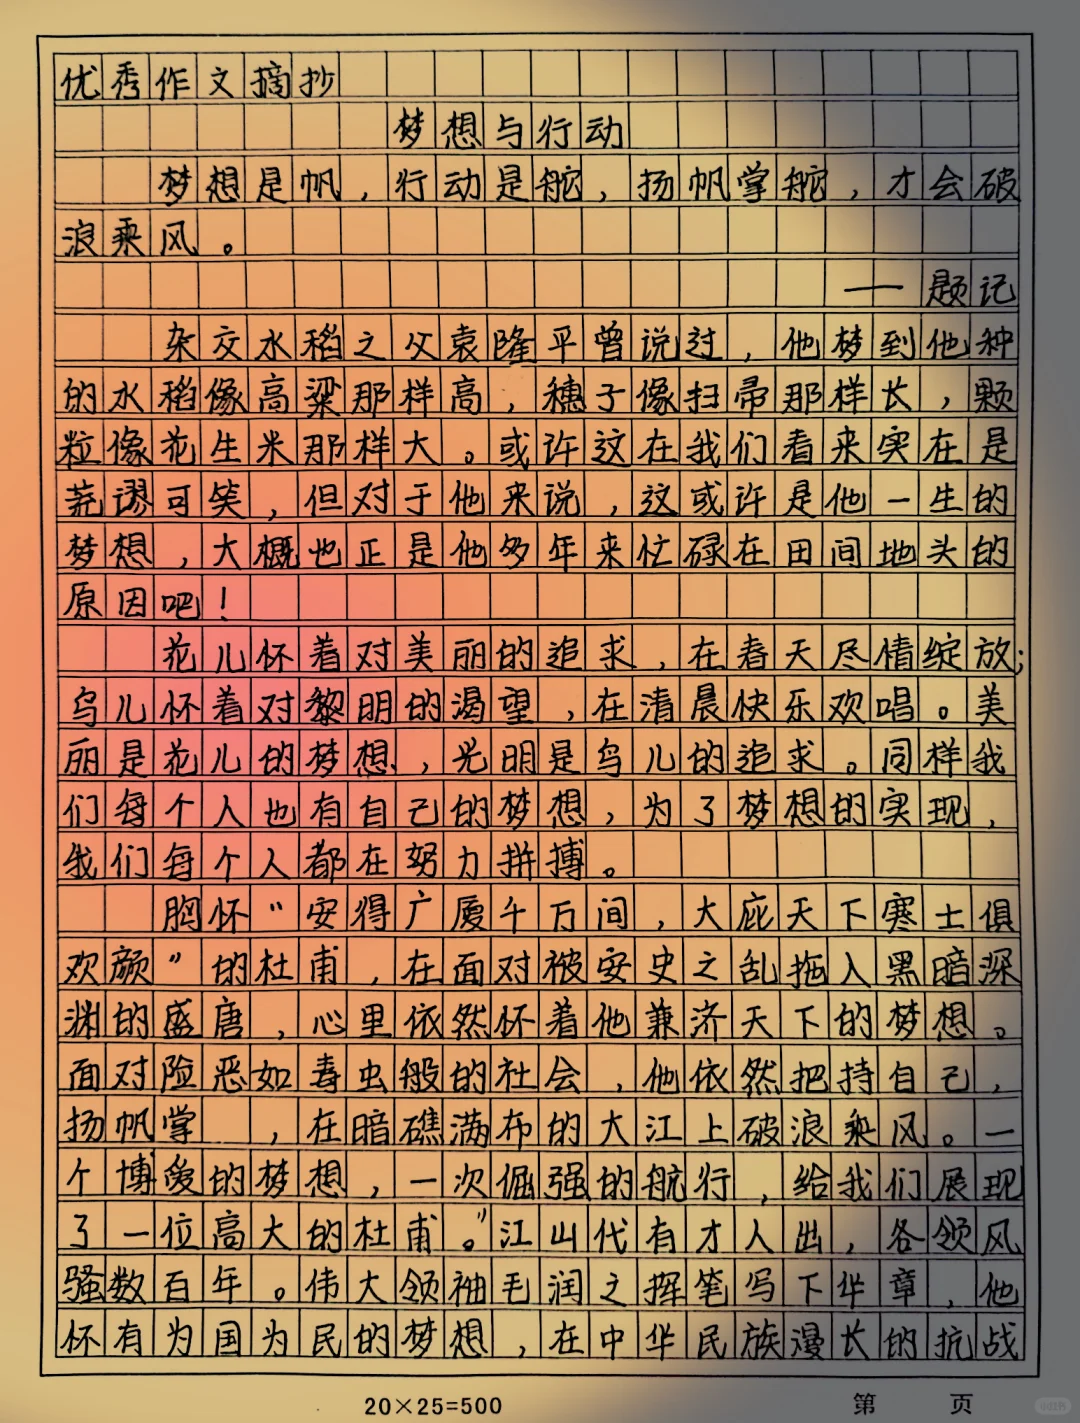 优秀作文摘抄
梦想与行动
梦想是帆，行动是舵，扬帆掌舵，才会破
浪乘风。
——题记
杂交水稻之父袁隆平曾说过，他梦到他种
的水稻像高粱那样高，穗子像扫帚那样长，颗
粒像花生米那样大。或许这在我们看来实在是
荒谬可笑，但对于他来说，这或许是他一生的
梦想，大概也正是他多年来忙碌在田间地头的
原因吧！
花儿怀着对美丽的追求，在春天尽情绽放；
鸟儿怀着对黎明的渴望，在清晨快乐欢唱。美
丽是花儿的梦想，光明是鸟儿的追求。同样我
们每个人也有自己的梦想，为了梦想的实现，
我们每个人都在努力拼搏。
胸怀“安得广厦千万间，大庇天下寒士俱
欢颜”的杜甫，在面对被安史之乱拖入黑暗深
渊的盛唐，心里依然怀着他兼济天下的梦想。
面对险恶如毒虫般的社会，他依然把持自己，
扬帆掌　，在暗礁满布的大江上破浪乘风。一
个博爱的梦想，一次倔强的航行，给我们展现
了一位高大的杜甫。”江山代有才人出，各领风
骚数百年。伟大领袖毛润之挥笔写下华章，他
怀有为国为民的梦想，在中华民族漫长的抗战
20×25=500
第　页
小红书